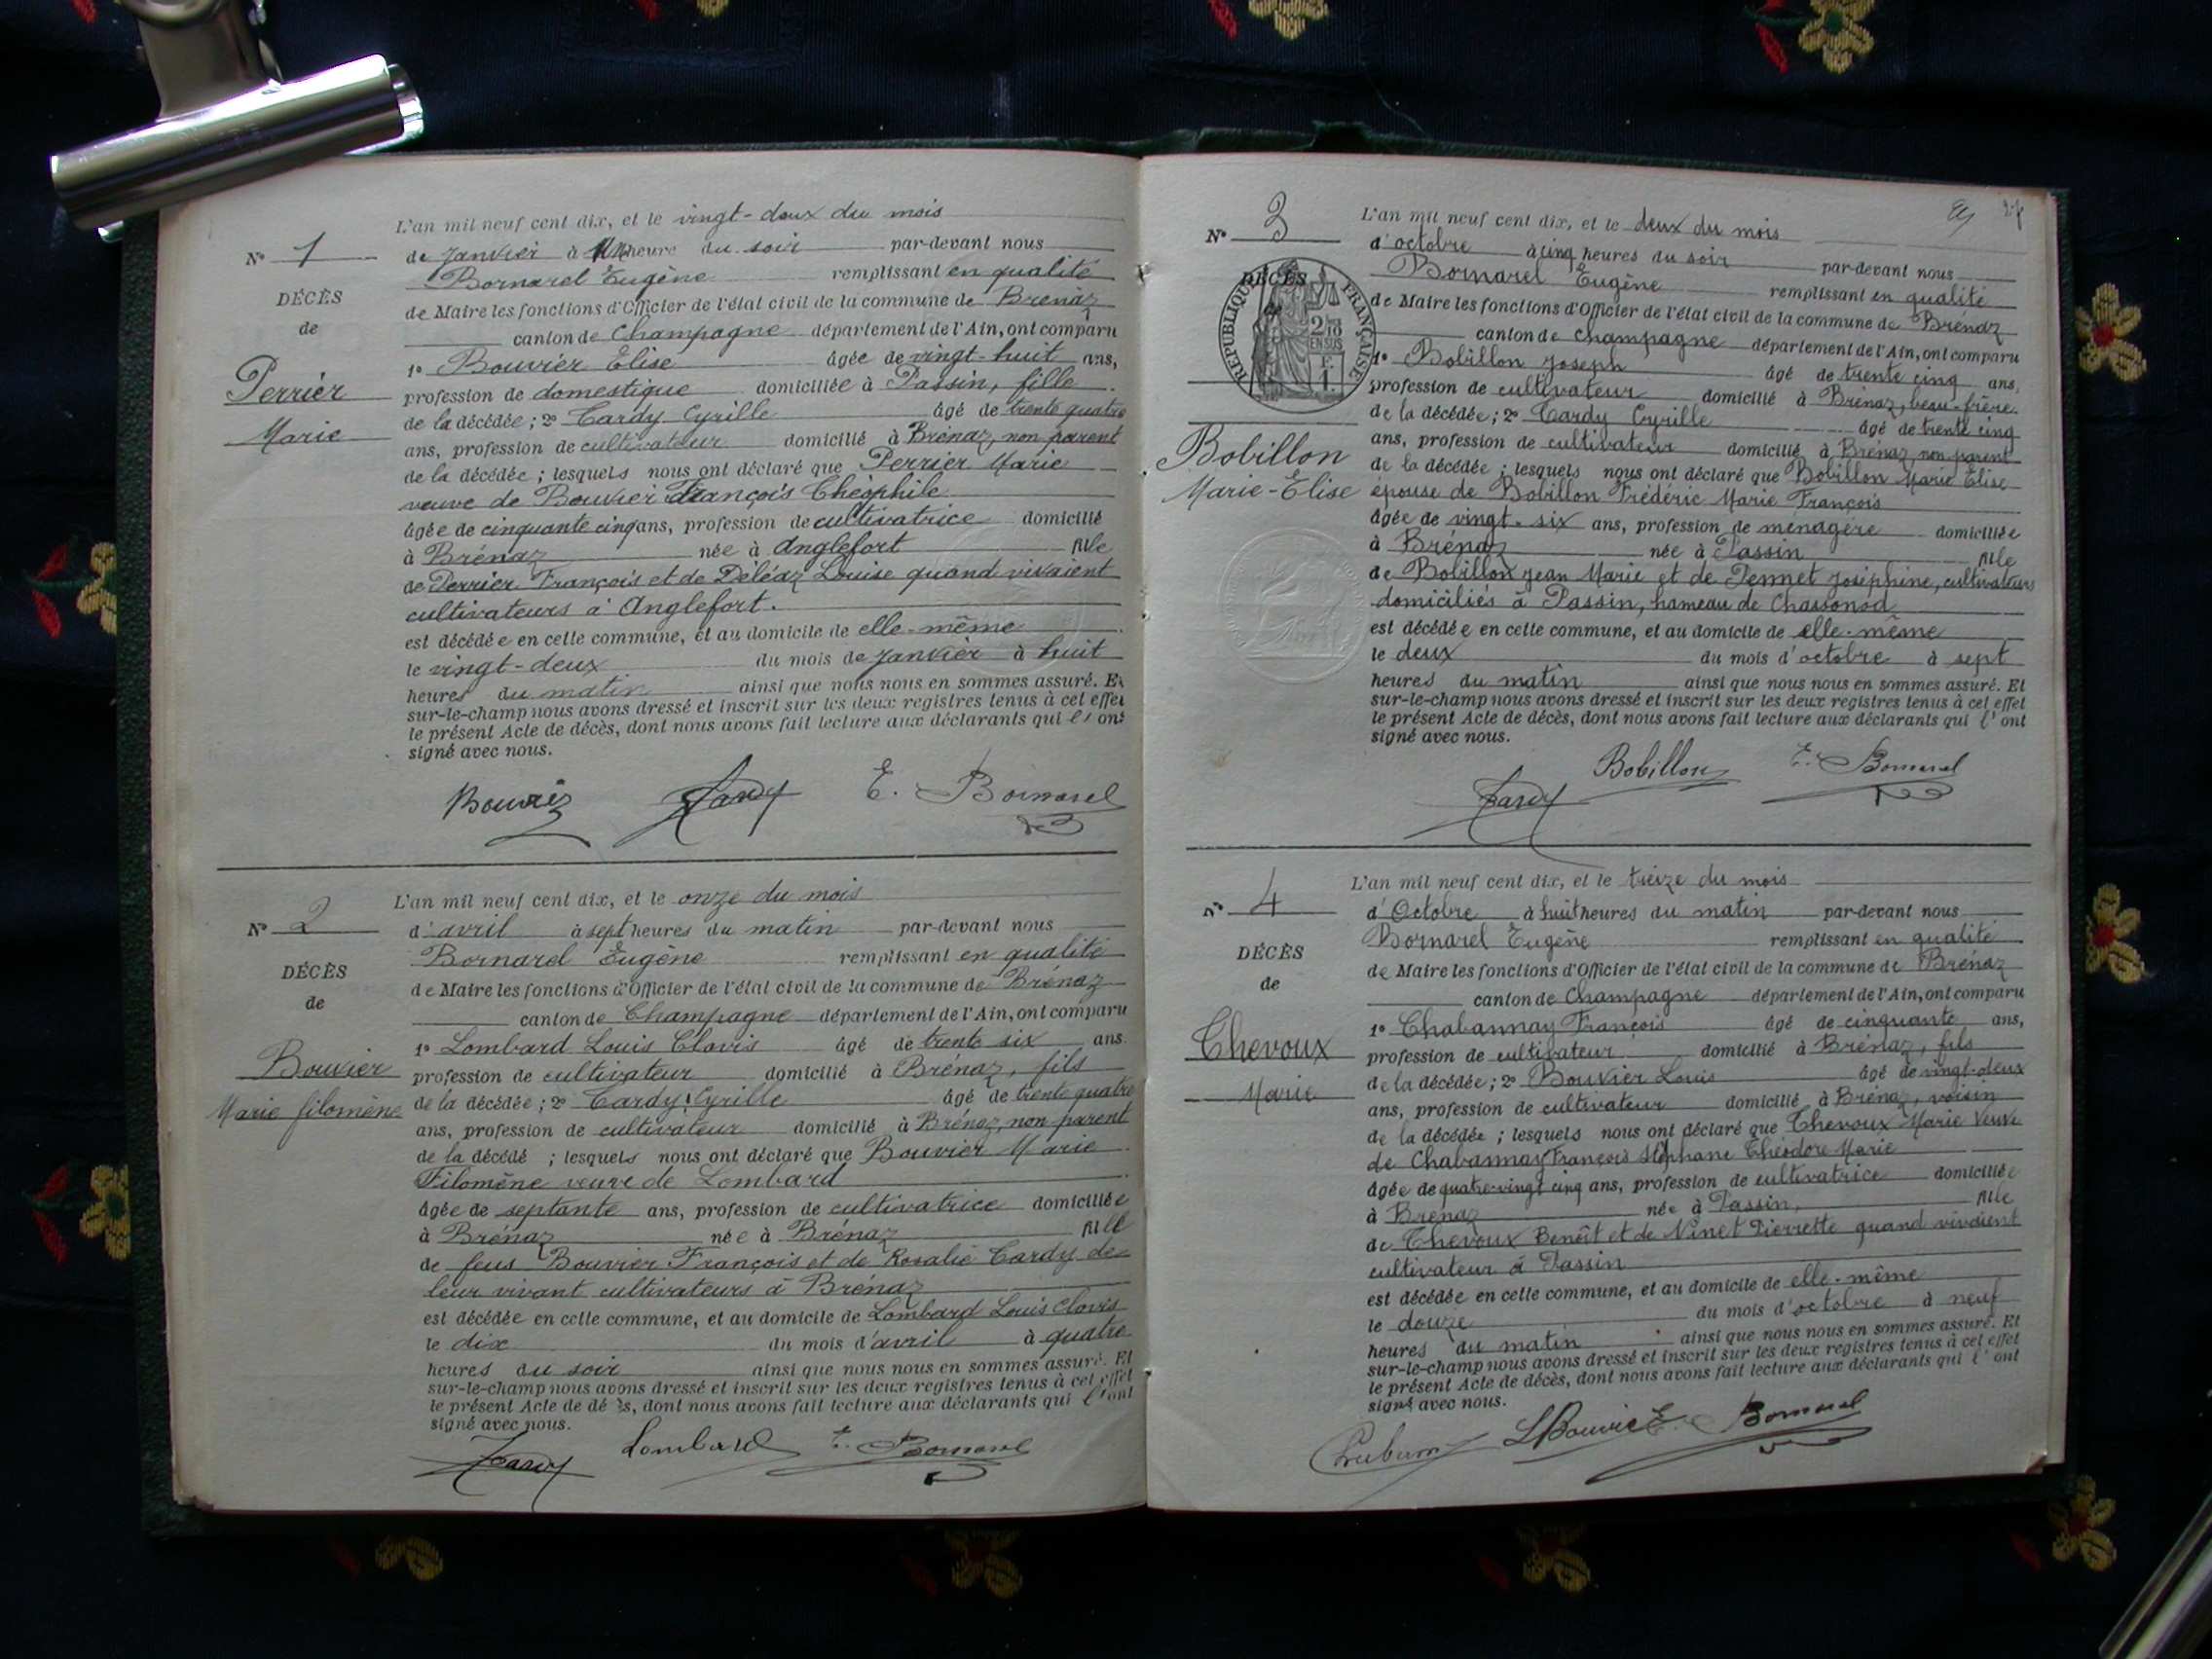 L'an mil neuf cent dix, et le vingt-deux du mois
N° 1
de Janvier à une heure du soir par-devant nous
Bornarel Eugène remplissant en qualité
DÉCÈS
de Maire les fonctions d'Officier de l'état civil de la commune de Brénaz
de
canton de Champagne département de l'Ain, ont comparu
1° Bouvier Elise âgée de vingt-huit ans,
Perrier
profession de domestique domiciliée à Passin, fille
de la décédée; 2° Tardy Cyrille âgé de trente quatre
Marie
ans, profession de cultivateur domicilié à Brénaz, non parent
de la décédée; lesquels nous ont déclaré que Perrier Marie
veuve de Bouvier François Théophile
âgée de cinquante cinq ans, profession de cultivatrice domicilié
à Brénaz née à Anglefort fille
de Perrier François et de Déléaz Louise quand vivaient
cultivateurs à Anglefort.
est décédée en cette commune, et au domicile de elle-même
le vingt-deux du mois de Janvier à huit
heures du matin ainsi que nous nous en sommes assuré. Et
sur-le-champ nous avons dressé et inscrit sur les deux registres tenus à cet effet
le présent Acte de décès, dont nous avons fait lecture aux déclarants qui l'ont
signé avec nous.
Bouvier Tardy E. Bornarel
L'an mil neuf cent dix, et le onze du mois
N° 2
d'avril à sept heures du matin par-devant nous
Bornarel Eugène remplissant en qualité
DÉCÈS
de Maire les fonctions d'Officier de l'état civil de la commune de Brénaz
de
canton de Champagne département de l'Ain, ont comparu
1° Lombard Louis Clovis âgé de trente six ans
Bouvier
profession de cultivateur domicilié à Brénaz, fils
Marie filomène
de la décédée; 2° Tardy Cyrille âgé de trente quatre
ans, profession de cultivateur domicilié à Brénaz, non parent
de la décédé ; lesquels nous ont déclaré que Bouvier Marie
Filomène veuve de Lombard
âgée de septante ans, profession de cultivatrice domiciliée
à Brénaz née à Brénaz fille
de feus Bouvier François et de Rosalie Tardy de
leur vivant cultivateurs à Brénaz
est décédée en cette commune, et au domicile de Lombard Louis Clovis
le dix du mois d'avril à quatre
heures du soir ainsi que nous nous en sommes assuré. Et
sur-le-champ nous avons dressé et inscrit sur les deux registres tenus à cet effet
le présent Acte de décès, dont nous avons fait lecture aux déclarants qui l'ont
signé avec nous.
Tardy Lombard E. Bornarel
L'an mil neuf cent dix, et le deux du mois
N° 3
d'octobre à cinq heures du soir par-devant nous
Bornarel Eugène remplissant en qualité
DÉCÈS
RÉPUBLIQUE FRANÇAISE
de Maire les fonctions d'Officier de l'état civil de la commune de Brénaz
canton de Champagne département de l'Ain, ont comparu
1° Bobillon Joseph âgé de trente cinq ans,
profession de cultivateur domicilié à Brénaz, beau-frère.
de la décédée; 2° Tardy Cyrille âgé de trente cinq
ans, profession de cultivateur domicilié à Brénaz, non parent
Bobillon
de la décédée; lesquels nous ont déclaré que Bobillon Marie Elise
Marie-Elise
épouse de Bobillon Frédéric Marie François
âgée de vingt-six ans, profession de ménagère domiciliée
à Brénaz née à Passin fille
de Bobillon Jean Marie et de Pennet Joséphine, cultivateurs
domiciliés à Passin, hameau de Chassonod
est décédée en cette commune, et au domicile de elle-même
le deux du mois d'octobre à sept
heures du matin ainsi que nous nous en sommes assuré. Et
sur-le-champ nous avons dressé et inscrit sur les deux registres tenus à cet effet
le présent Acte de décès, dont nous avons fait lecture aux déclarants qui l'ont
signé avec nous.
Tardy Bobillon E. Bornarel
L'an mil neuf cent dix, et le treize du mois
N° 4
d'Octobre à huit heures du matin par-devant nous
Bornarel Eugène remplissant en qualité
DÉCÈS
de Maire les fonctions d'Officier de l'état civil de la commune de Brénaz
de
canton de Champagne département de l'Ain, ont comparu
1° Chabannay François âgé de cinquante ans,
Thevoux
profession de cultivateur domicilié à Brénaz, fils
de la décédée; 2° Bouvier Louis âgé de vingt-deux
Marie
ans, profession de cultivateur domicilié à Brénaz, voisin
de la décédée; lesquels nous ont déclaré que Thevoux Marie Veuve
de Chabannay François Stéphane Théodore Marie
âgée de quatre-vingt cinq ans, profession de cultivatrice domiciliée
à Brénaz née à Passin, fille
de Thevoux Benoît et de Ninet Pierrette quand vivaient
cultivateur à Passin
est décédée en cette commune, et au domicile de elle-même
le douze du mois d'octobre à neuf
heures du matin ainsi que nous nous en sommes assuré. Et
sur-le-champ nous avons dressé et inscrit sur les deux registres tenus à cet effet
le présent Acte de décès, dont nous avons fait lecture aux déclarants qui l'ont
signé avec nous.
L Bouvier E. Bornarel